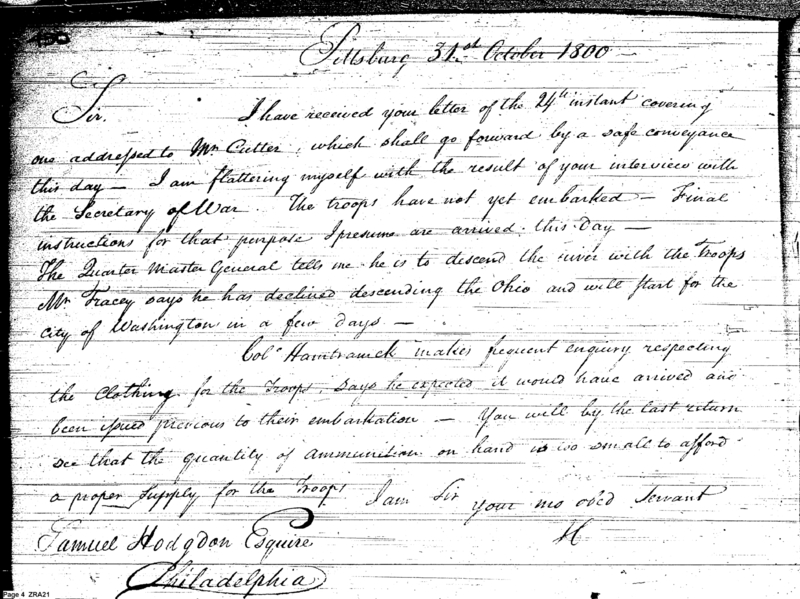 Pittsburg 31st October 1800 —
Sir. I have received your letter of the 24th instant covering
one addressed to Mr. Cutter, which shall go forward by a safe conveyance
this day — I am flattering myself with the result of your interview with
the Secretary of War. The troops have not yet embarked — Final
instructions for that purpose I presume are arrived this day —
The Quarter Master General tells me he is to descend the river with the Troops
Mr Tracey says he has declined descending the Ohio and will start for the
City of Washington in a few days —
Colo Hamtramck makes frequent enquiry respecting
the Clothing for the Troops, says he expected it would have arrived and
been issued previous to their embarkation — You will by the last return
see that the quantity of ammunition on hand is too small to afford
a proper supply for the Troops I am Sir your mo obed Servant
Samuel Hodgdon Esquire
Philadelphia
Page 4 ZRA21